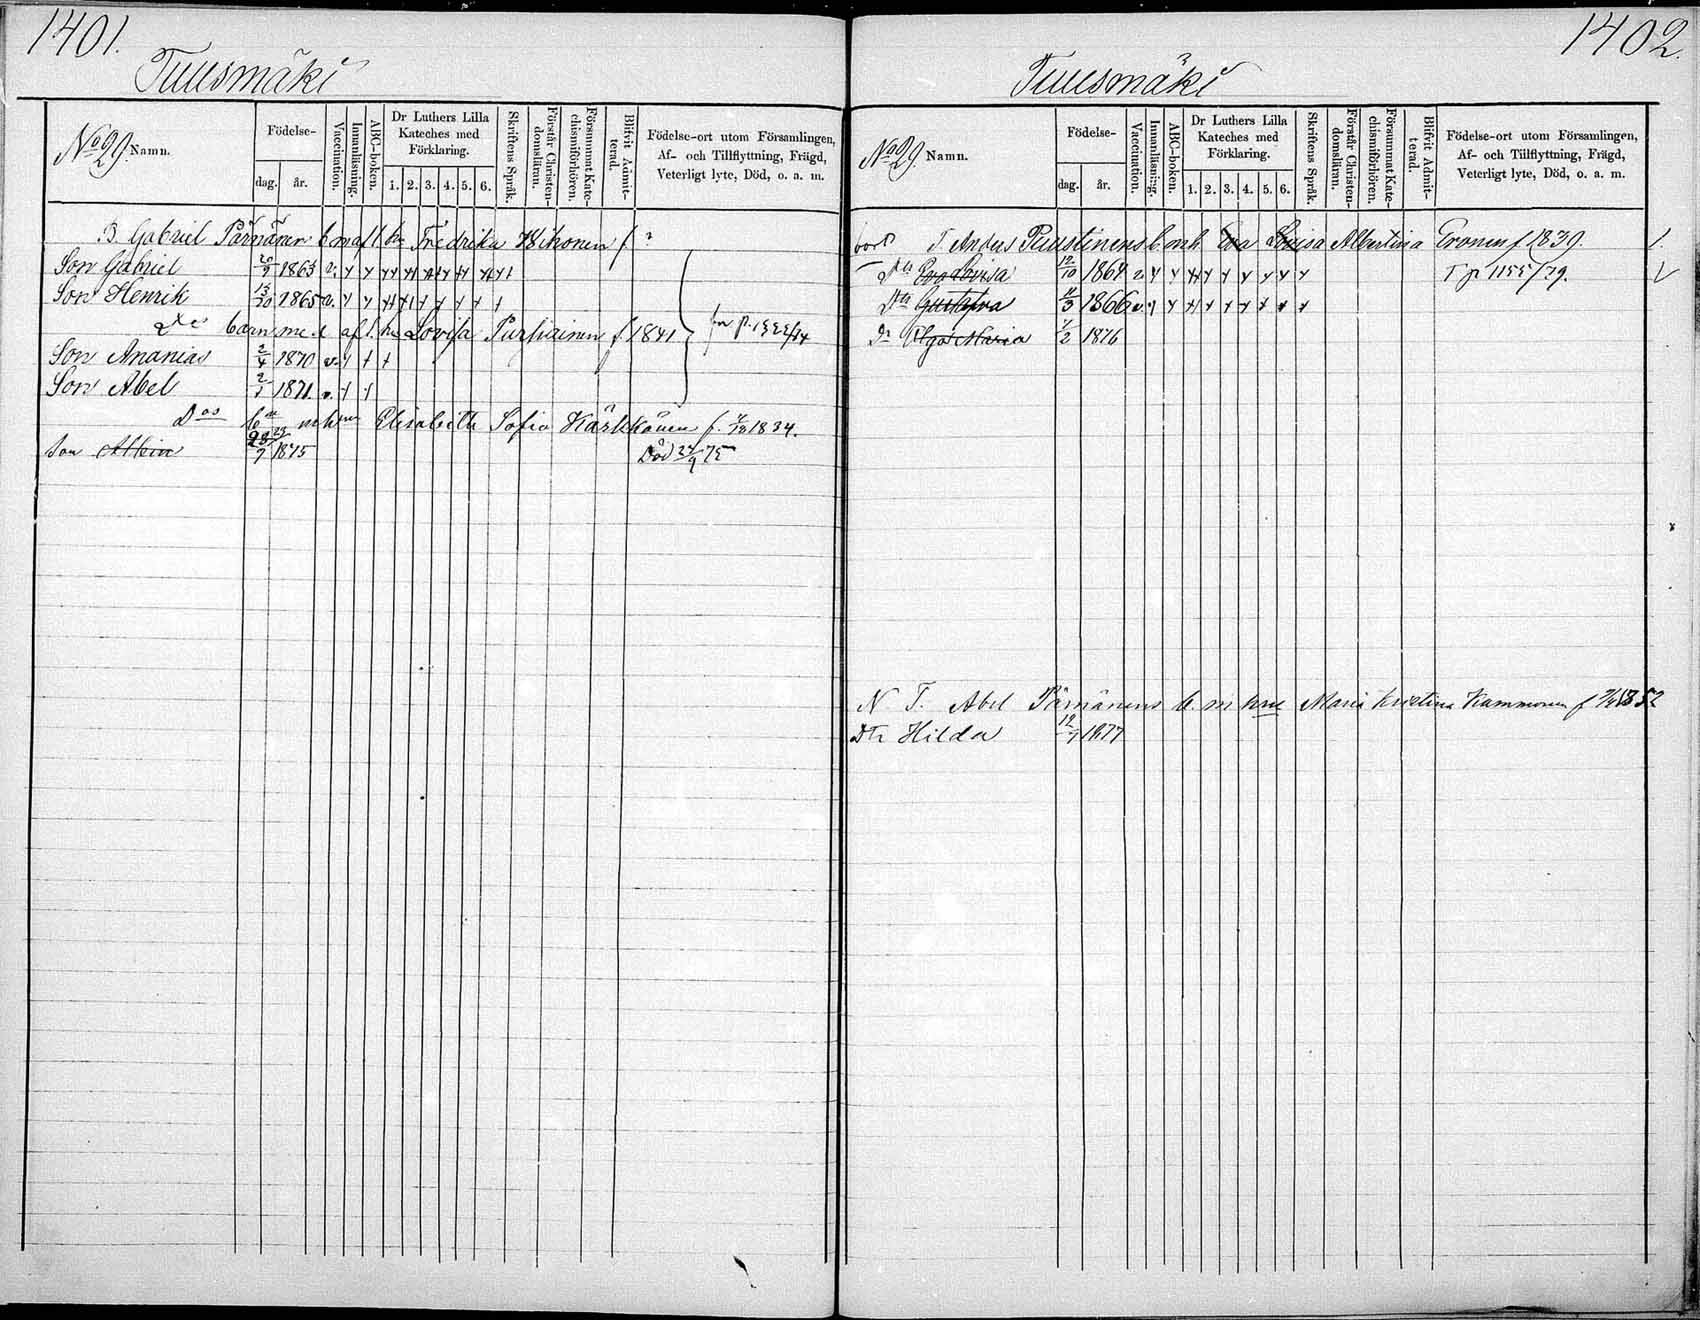 1401.
Tuusmäki
No 29. Namn.
Födelse-
dag. år.
Vaccination.
Innanläsning.
ABC-boken.
Dr Luthers Lilla
Kateches med
Förklaring.
1. 2. 3. 4. 5. 6.
Skriftens Språk.
Förstår Christen-
domsläran.
Försummat Kate-
chismiförhören.
Blifvit Admit-
terad.
Födelse-ort utom Församlingen,
Af- och Tillflyttning, Frägd,
Veterligt lyte, Död, o. a. m.
B. Gabriel Pärnänen b. m afl. hu Fredrika Wihonen f ?
Son Gabriel 20/9 1863 v.
Son Henrik 13/10 1865 v.
barn med afl. hu Lovisa Pursiainen f. 1841
Son Ananias 2/4 1870 v.
Son Abel 2/1 1871. v.
Dos bn m hrun Elisabeth Sofia Kärkkäinen f. 1834.
Son Albin 7 1875 Död 24/9 75
1402.
Tuusmäki
No 29. Namn.
Födelse-
dag. år.
Vaccination.
Innanläsning.
ABC-boken.
Dr Luthers Lilla
Kateches med
Förklaring.
1. 2. 3. 4. 5. 6.
Skriftens Språk.
Förstår Christen-
domsläran.
Försummat Kate-
chismiförhören.
Blifvit Admit-
terad.
Födelse-ort utom Församlingen,
Af- och Tillflyttning, Frägd,
Veterligt lyte, Död, o. a. m.
bort T. Anders Puustinens b. m h Eva Lovisa Albertina Eronen f 1839.
Dtr Eva Lovisa 12/10 1864 v. T. p 1155/79.
Dtr Gustava 11/3 1866 v.
Dr Olga Maria 1/2 1876
N T. Abel Pärnänens b. m hru Maria Kristina Kammonen f 1852
Dtr Hilda 12/7 1877